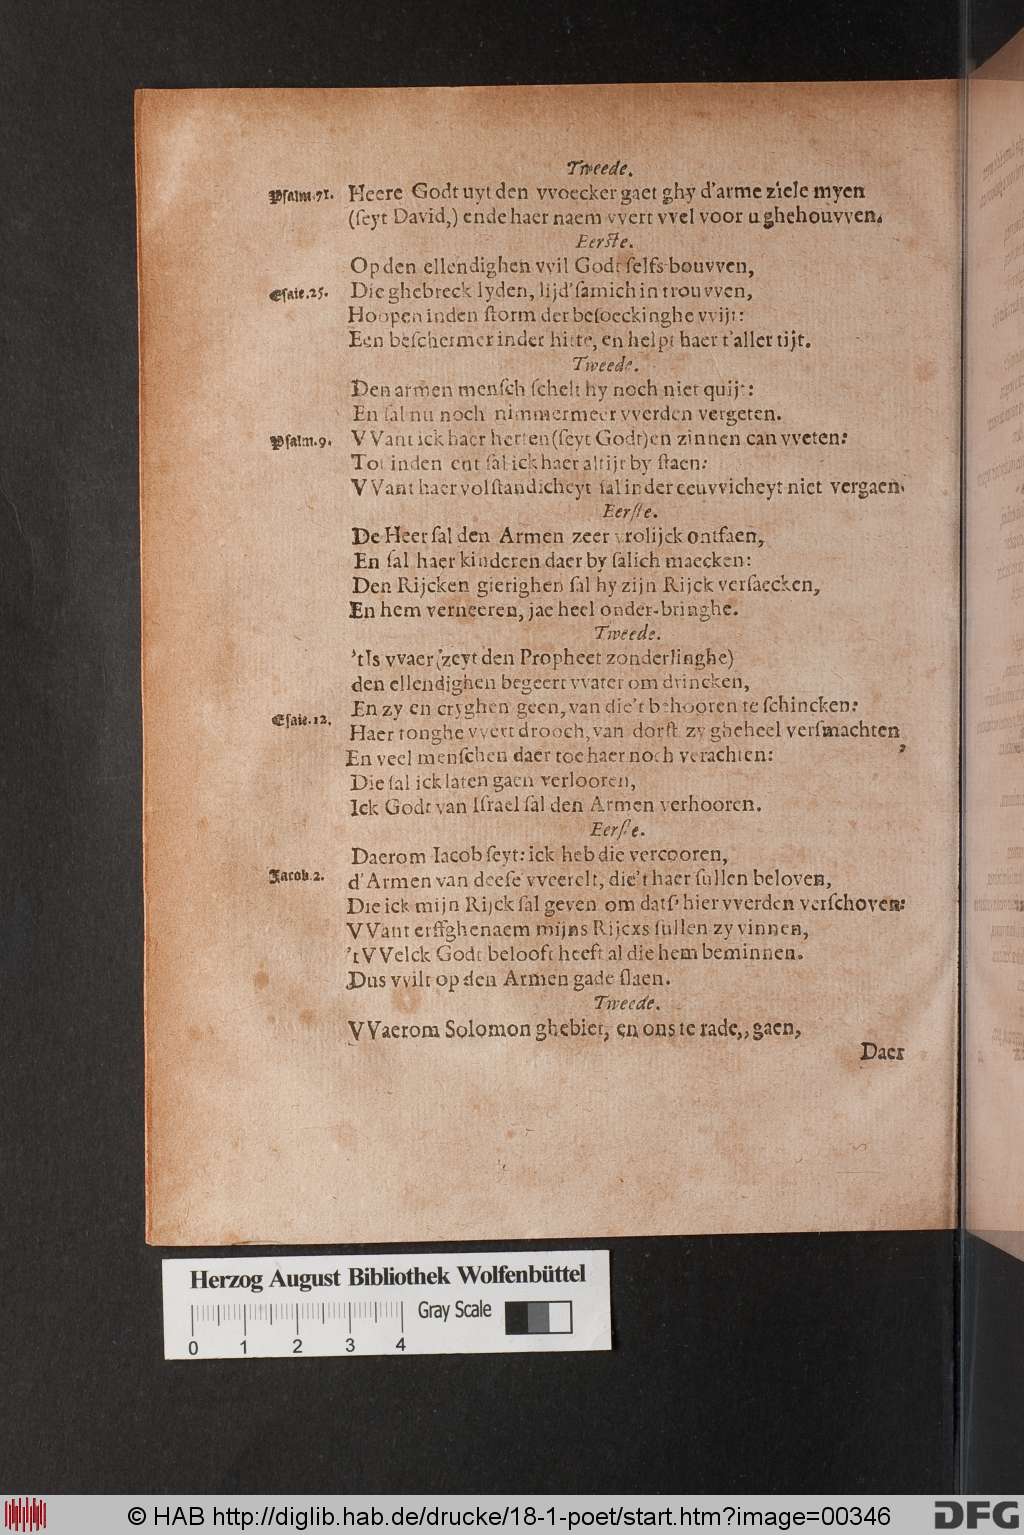 Tweede.
Psalm.71. Heere Godt uyt den vvoecker gaet ghy d'arme ziele myen
(seyt David,) ende haer naem vvert vvel voor u ghehouvven.
Eerste.
Op den ellendighen vvil Godt selfs bouvven,
Esaie.25. Die ghebreck lyden, lijd'samich in trouvven,
Hoopen inden storm der besoeckinghe vvijt:
Een beschermer inder hitte, en helpt haer t'aller tijt.
Tweede.
Den armen mensch schelt hy noch niet quijt:
En sal nu noch nimmermeer vverden vergeten.
Psalm.9. VVant ick haer herten (seyt Godt) en zinnen can vveten:
Tot inden ent sal ick haer altijt by staen:
VVant haer volstandicheyt sal inder eeuvvicheyt niet vergaen.
Eerste.
De Heer sal den Armen zeer vrolijck ontfaen,
En sal haer kinderen daer by salich maecken:
Den Rijcken gierighen sal hy zijn Rijck versaecken,
En hem verneeren, jae heel onder-bringhe.
Tweede.
'tIs vvaer (zeyt den Propheet zonderlinghe)
den ellendighen begeert vvater om drincken,
En zy en cryghen geen, van die't behooren te schincken:
Esaie.12. Haer tonghe vvert drooch, van dorst zy gheheel versmachten,
En veel menschen daer toe haer noch verachten:
Die sal ick laten gaen verlooren,
Ick Godt van Israel sal den Armen verhooren.
Eerste.
Daerom Iacob seyt: ick heb die vercooren,
Jacob.2. d'Armen van deese vveerelt, die't haer sullen beloven,
Die ick mijn Rijck sal geven om dats' hier vverden verschoven:
VVant erffghenaem mijns Rijcxs sullen zy vinnen,
'tVVelck Godt belooft heeft al die hem beminnen.
Dus vvilt op den Armen gade slaen.
Tweede.
VVaerom Solomon ghebiet, en ons te rade,, gaen,
Daer
Herzog August Bibliothek Wolfenbüttel
Gray Scale
0 1 2 3 4
© HAB http://diglib.hab.de/drucke/18-1-poet/start.htm?image=00346
DFG